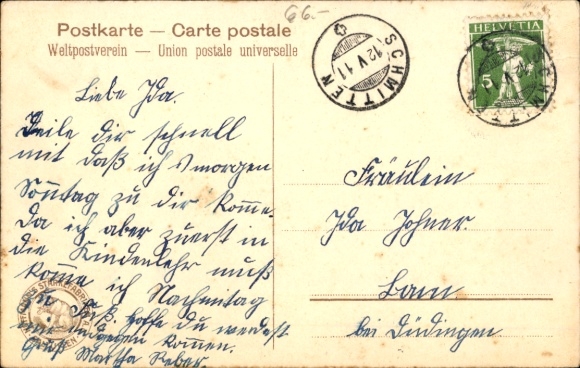 66.-
Postkarte — Carte postale
Weltpostverein — Union postale universelle
SCHMITTEN
12 V 11
HELVETIA
5
Liebe Ida.
Teile dir schnell
mit daß ich morgen
Sonntag zu dir komme.
Da ich aber zuerst in
die Kinderlehr muß
komme ich Nachmittag
zu Fuß. Hoffe du werdest
mir entgegen kommen.
Gruß Martha Reber.
Fräulein
Ida Johner.
Lam
bei Düdingen